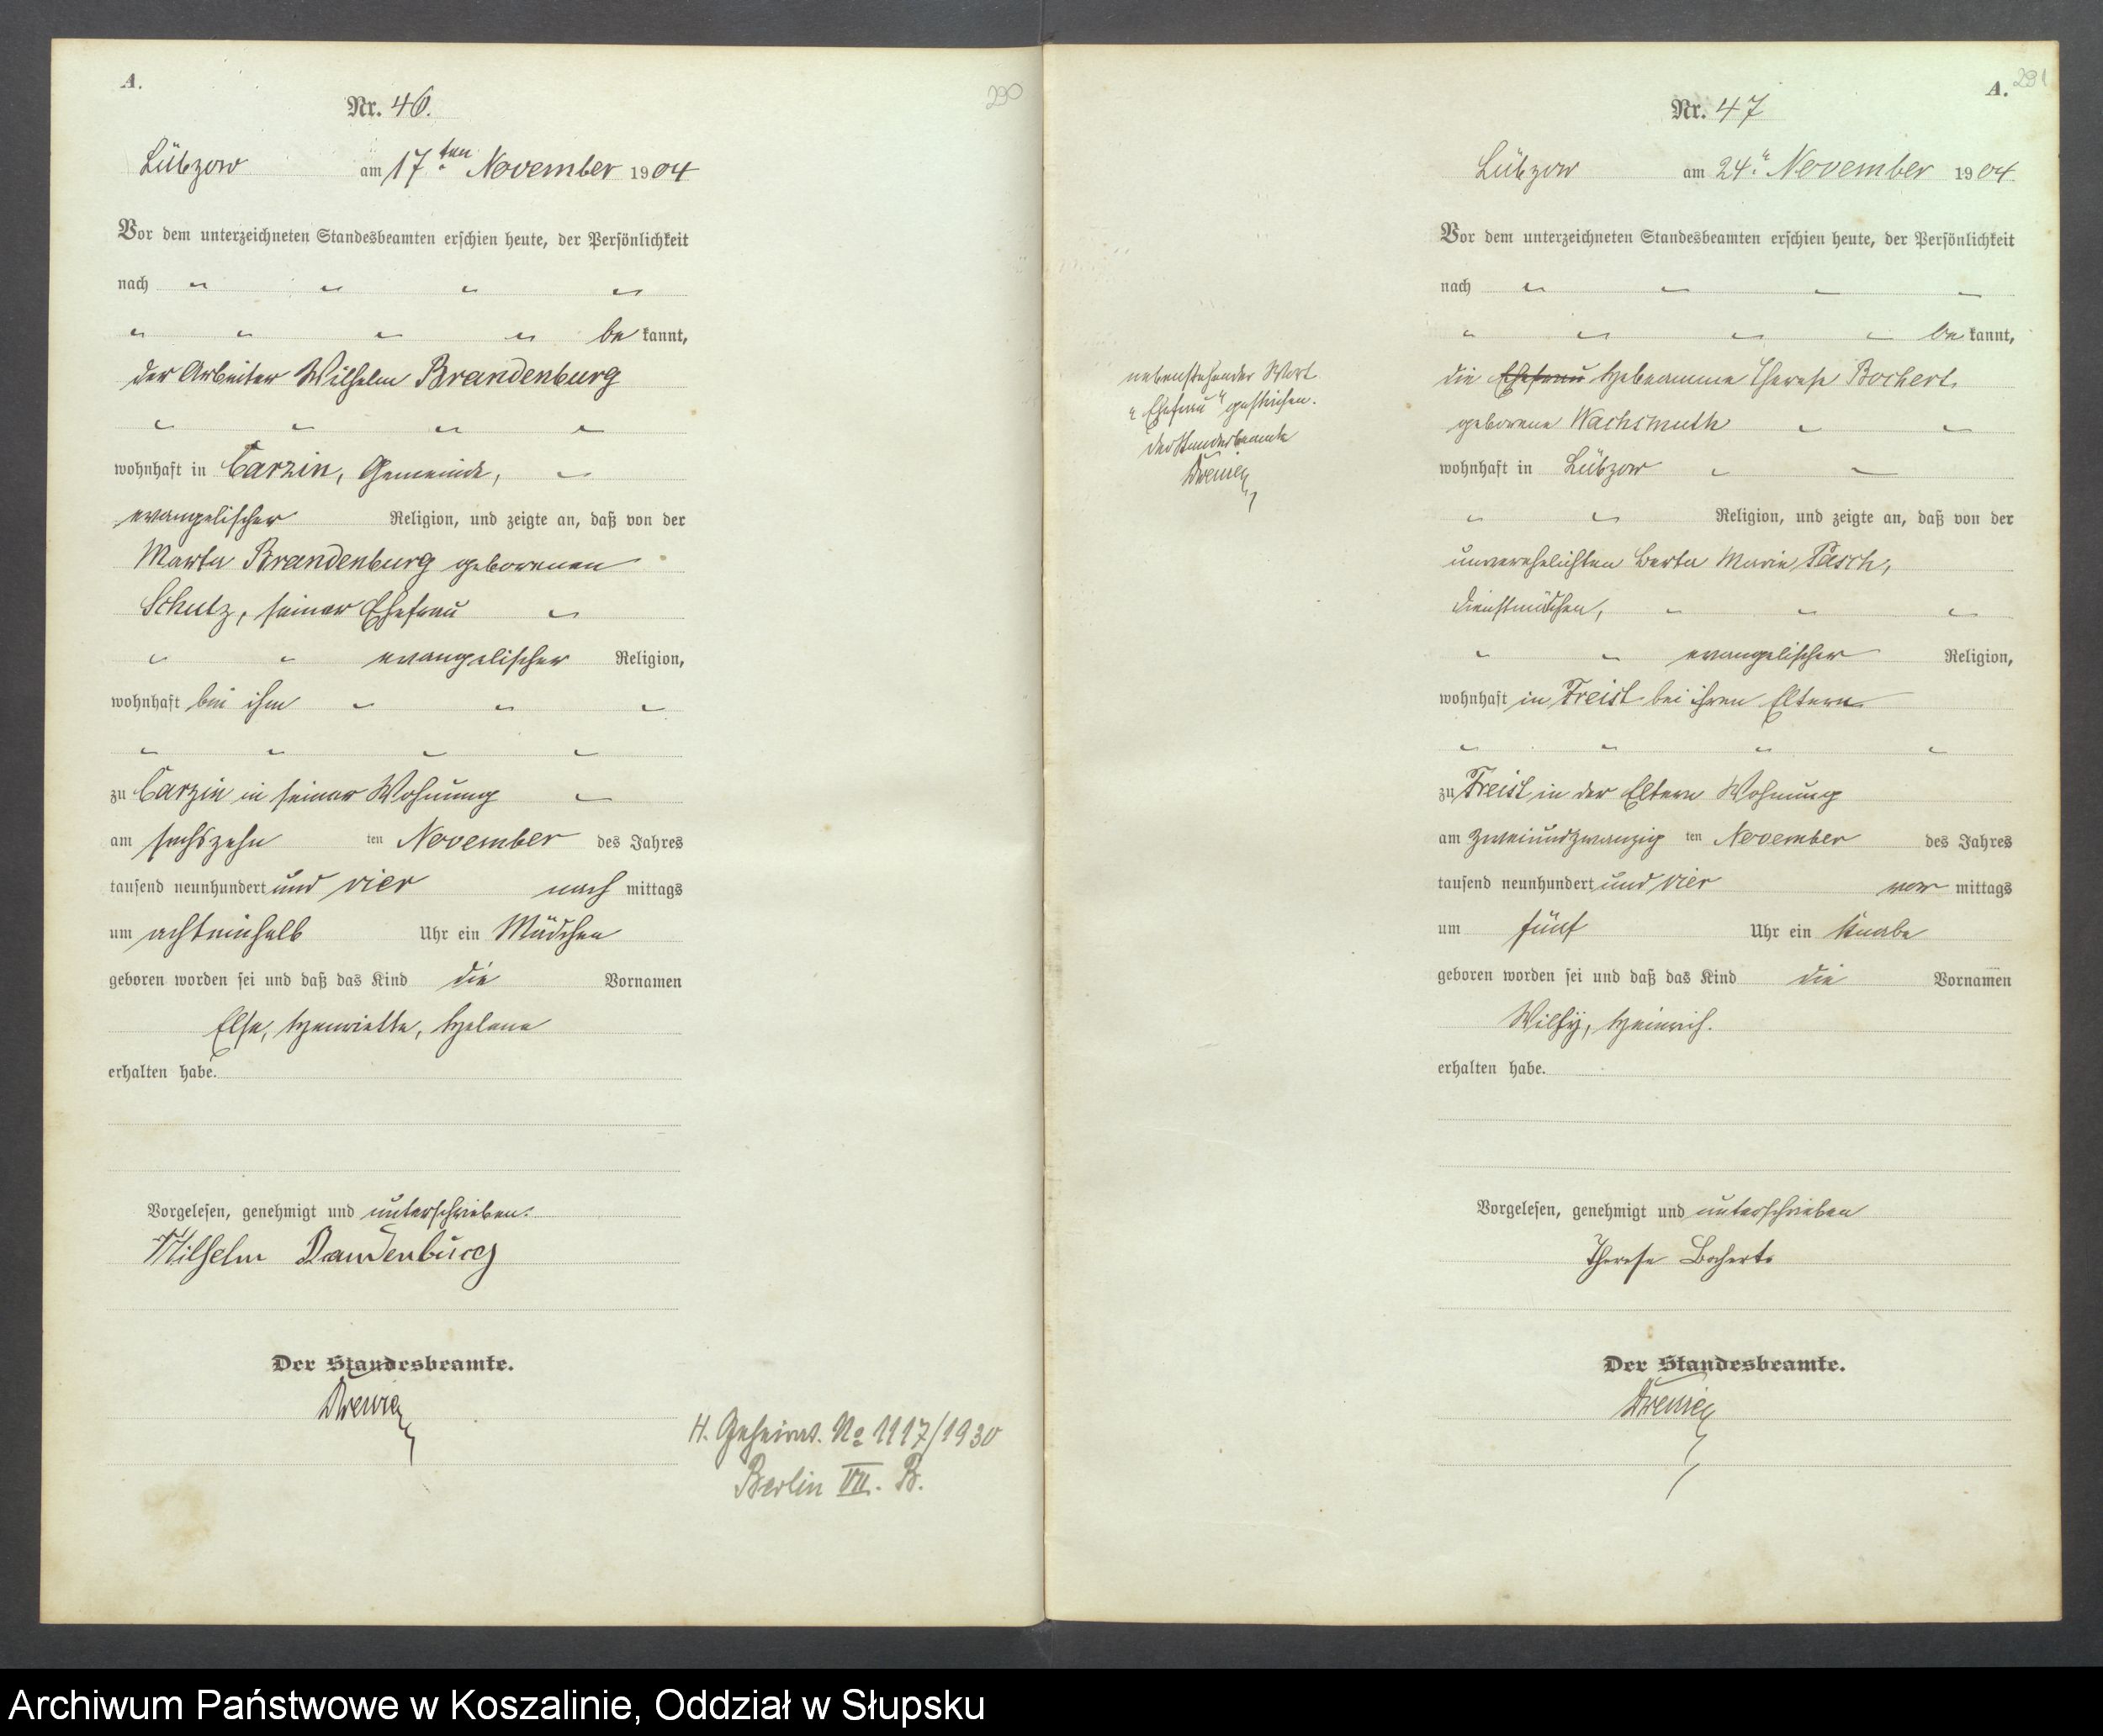 A.
290
Nr. 46.
Lübzow am 17ten November 1904
Vor dem unterzeichneten Standesbeamten erschien heute, der Persönlichkeit
nach
be kannt,
der Arbeiter Wilhelm Brandenburg
wohnhaft in Carzin, Gemeinde,
evangelischer Religion, und zeigte an, daß von der
Marta Brandenburg geborenen
Schulz, seiner Ehefrau
evangelischer Religion,
wohnhaft bei ihm
zu Carzin in seiner Wohnung
am sechszehn ten November des Jahres
tausend neunhundert und vier nach mittags
um achteinhalb Uhr ein Mädchen
geboren worden sei und daß das Kind die Vornamen
Else, Henriette, Helene
erhalten habe.
Vorgelesen, genehmigt und unterschrieben.
Wilhelm Brandenburg
Der Standesbeamte.
H. Geheirat. No 1117/1930
Berlin VII. B.
A.
291
Nr. 47
Lübzow am 24. November 1904
Vor dem unterzeichneten Standesbeamten erschien heute, der Persönlichkeit
nach
be kannt,
die Ehefrau Hebeamme Therese Bochert
geborene Wachsmuth
wohnhaft in Lübzow
Religion, und zeigte an, daß von der
unverehelichten Berta Marie Pasch,
Dienstmädchen,
evangelischer Religion,
wohnhaft in Freist bei ihren Eltern
zu Freist in der Eltern Wohnung
am zweiundzwanzig ten November des Jahres
tausend neunhundert und vier vor mittags
um fünf Uhr ein Knabe
geboren worden sei und daß das Kind die Vornamen
Willy, Heinrich.
erhalten habe.
Vorgelesen, genehmigt und unterschrieben
Therese Bochert
Der Standesbeamte.
nebenstehender Wort
"Ehefrau" gestrichen.
Der Standesbeamte
Archiwum Państwowe w Koszalinie, Oddział w Słupsku